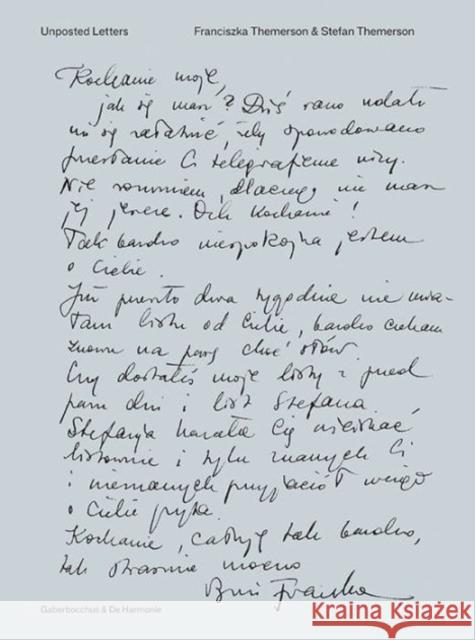 Unposted Letters Franciszka Themerson & Stefan Themerson
Kochanie moje,
jak się masz? Dziś rano udało
mi się załatwić, żeby spowodowano
przesłanie Ci telegrafem wizy.
Nie rozumiem, dlaczego nie masz
jej jeszcze. Och Kochanie!
Tak bardzo niespokojna jestem
o Ciebie.
Już prawie dwa tygodnie nie mia-
łam listu od Ciebie, bardzo czekam
znowu na parę choć słów.
Czy dostałeś moje listy z przed
paru dni i list Stefana.
Stefania kazała Cię uściskać
listownie i tylu znanych Ci
i nieznanych przyjaciół wciąż
o Ciebie pyta.
Kochanie, całuję tak bardzo,
tak strasznie mocno
Franka
Gaberbocchus & De Harmonie
krainaksiazek.pl